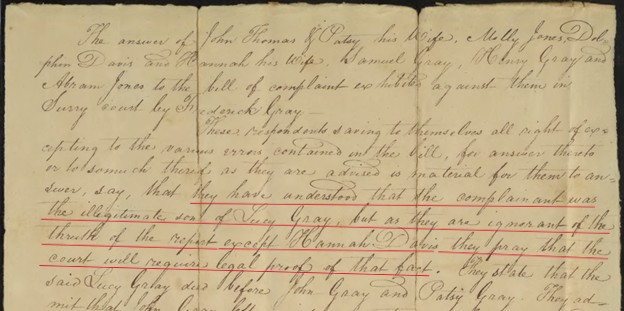 The answer of John Thomas & Patsy his Wife, Molly Jones, Dol-
phin Davis and Hannah his Wife, Samuel Gray, Henry Gray and
Abram Jones to the bill of complaint exhibited against them in
Surry court by Frederick Gray—
These respondents saving to themselves all right of ex-
cepting to the various errors contained in the bill, for answer thereto
or to so much thereof as they are advised is material for them to an-
swer, say, that they have understood that the complainant was
the illegitimate son of Lucy Gray, but as they are ignorant of the
thruth of the report except Hannah Davis they pray that the
court will require legal proof of that fact. They state that the
said Lucy Gray died before John Gray and Patsy Gray. They ad-
mit that John Gray